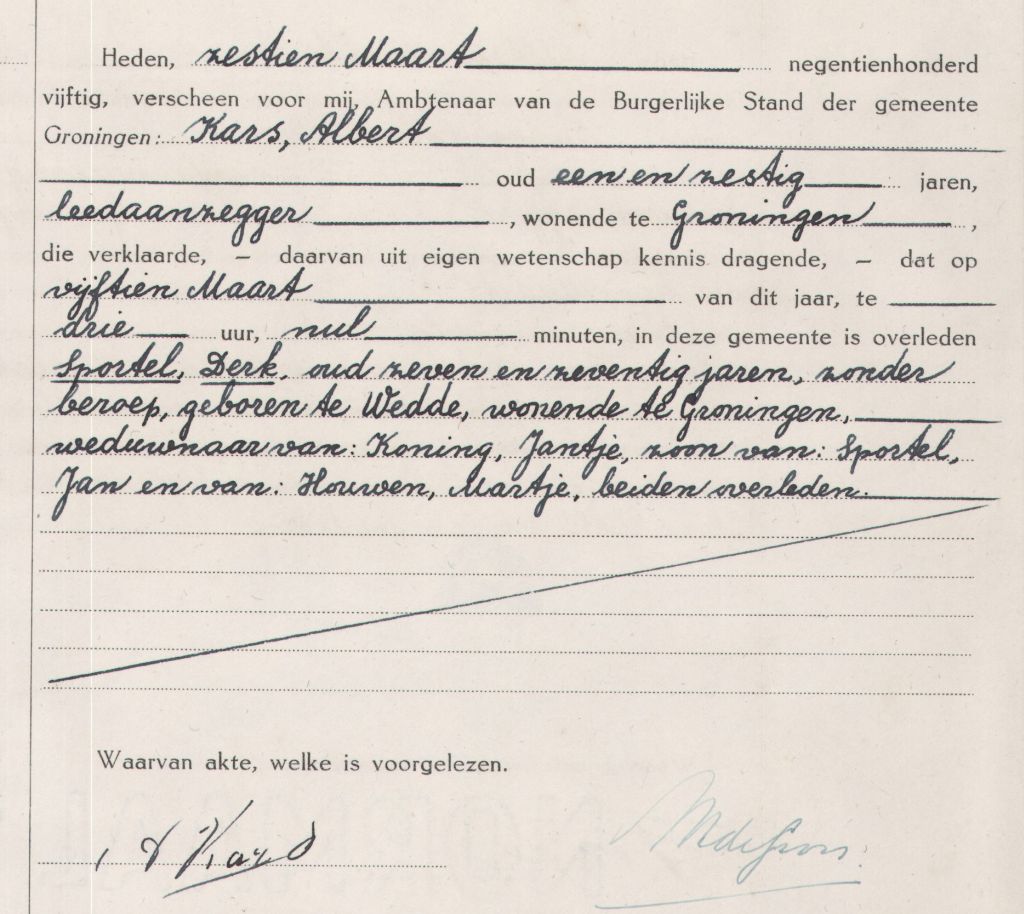 Heden, zestien Maart negentienhonderd
vijftig, verscheen voor mij, Ambtenaar van de Burgerlijke Stand der gemeente
Groningen: Kars, Albert
oud een en zestig jaren,
leedaanzegger, wonende te Groningen,
die verklaarde, — daarvan uit eigen wetenschap kennis dragende, — dat op
vijftien Maart van dit jaar, te
drie uur, nul minuten, in deze gemeente is overleden
Sportel, Derk, oud zeven en zeventig jaren, zonder
beroep, geboren te Wedde, wonende te Groningen,
weduwnaar van: Koning, Jantje, zoon van: Sportel,
Jan en van: Houwen, Martje, beiden overleden.
Waarvan akte, welke is voorgelezen.
A Kars